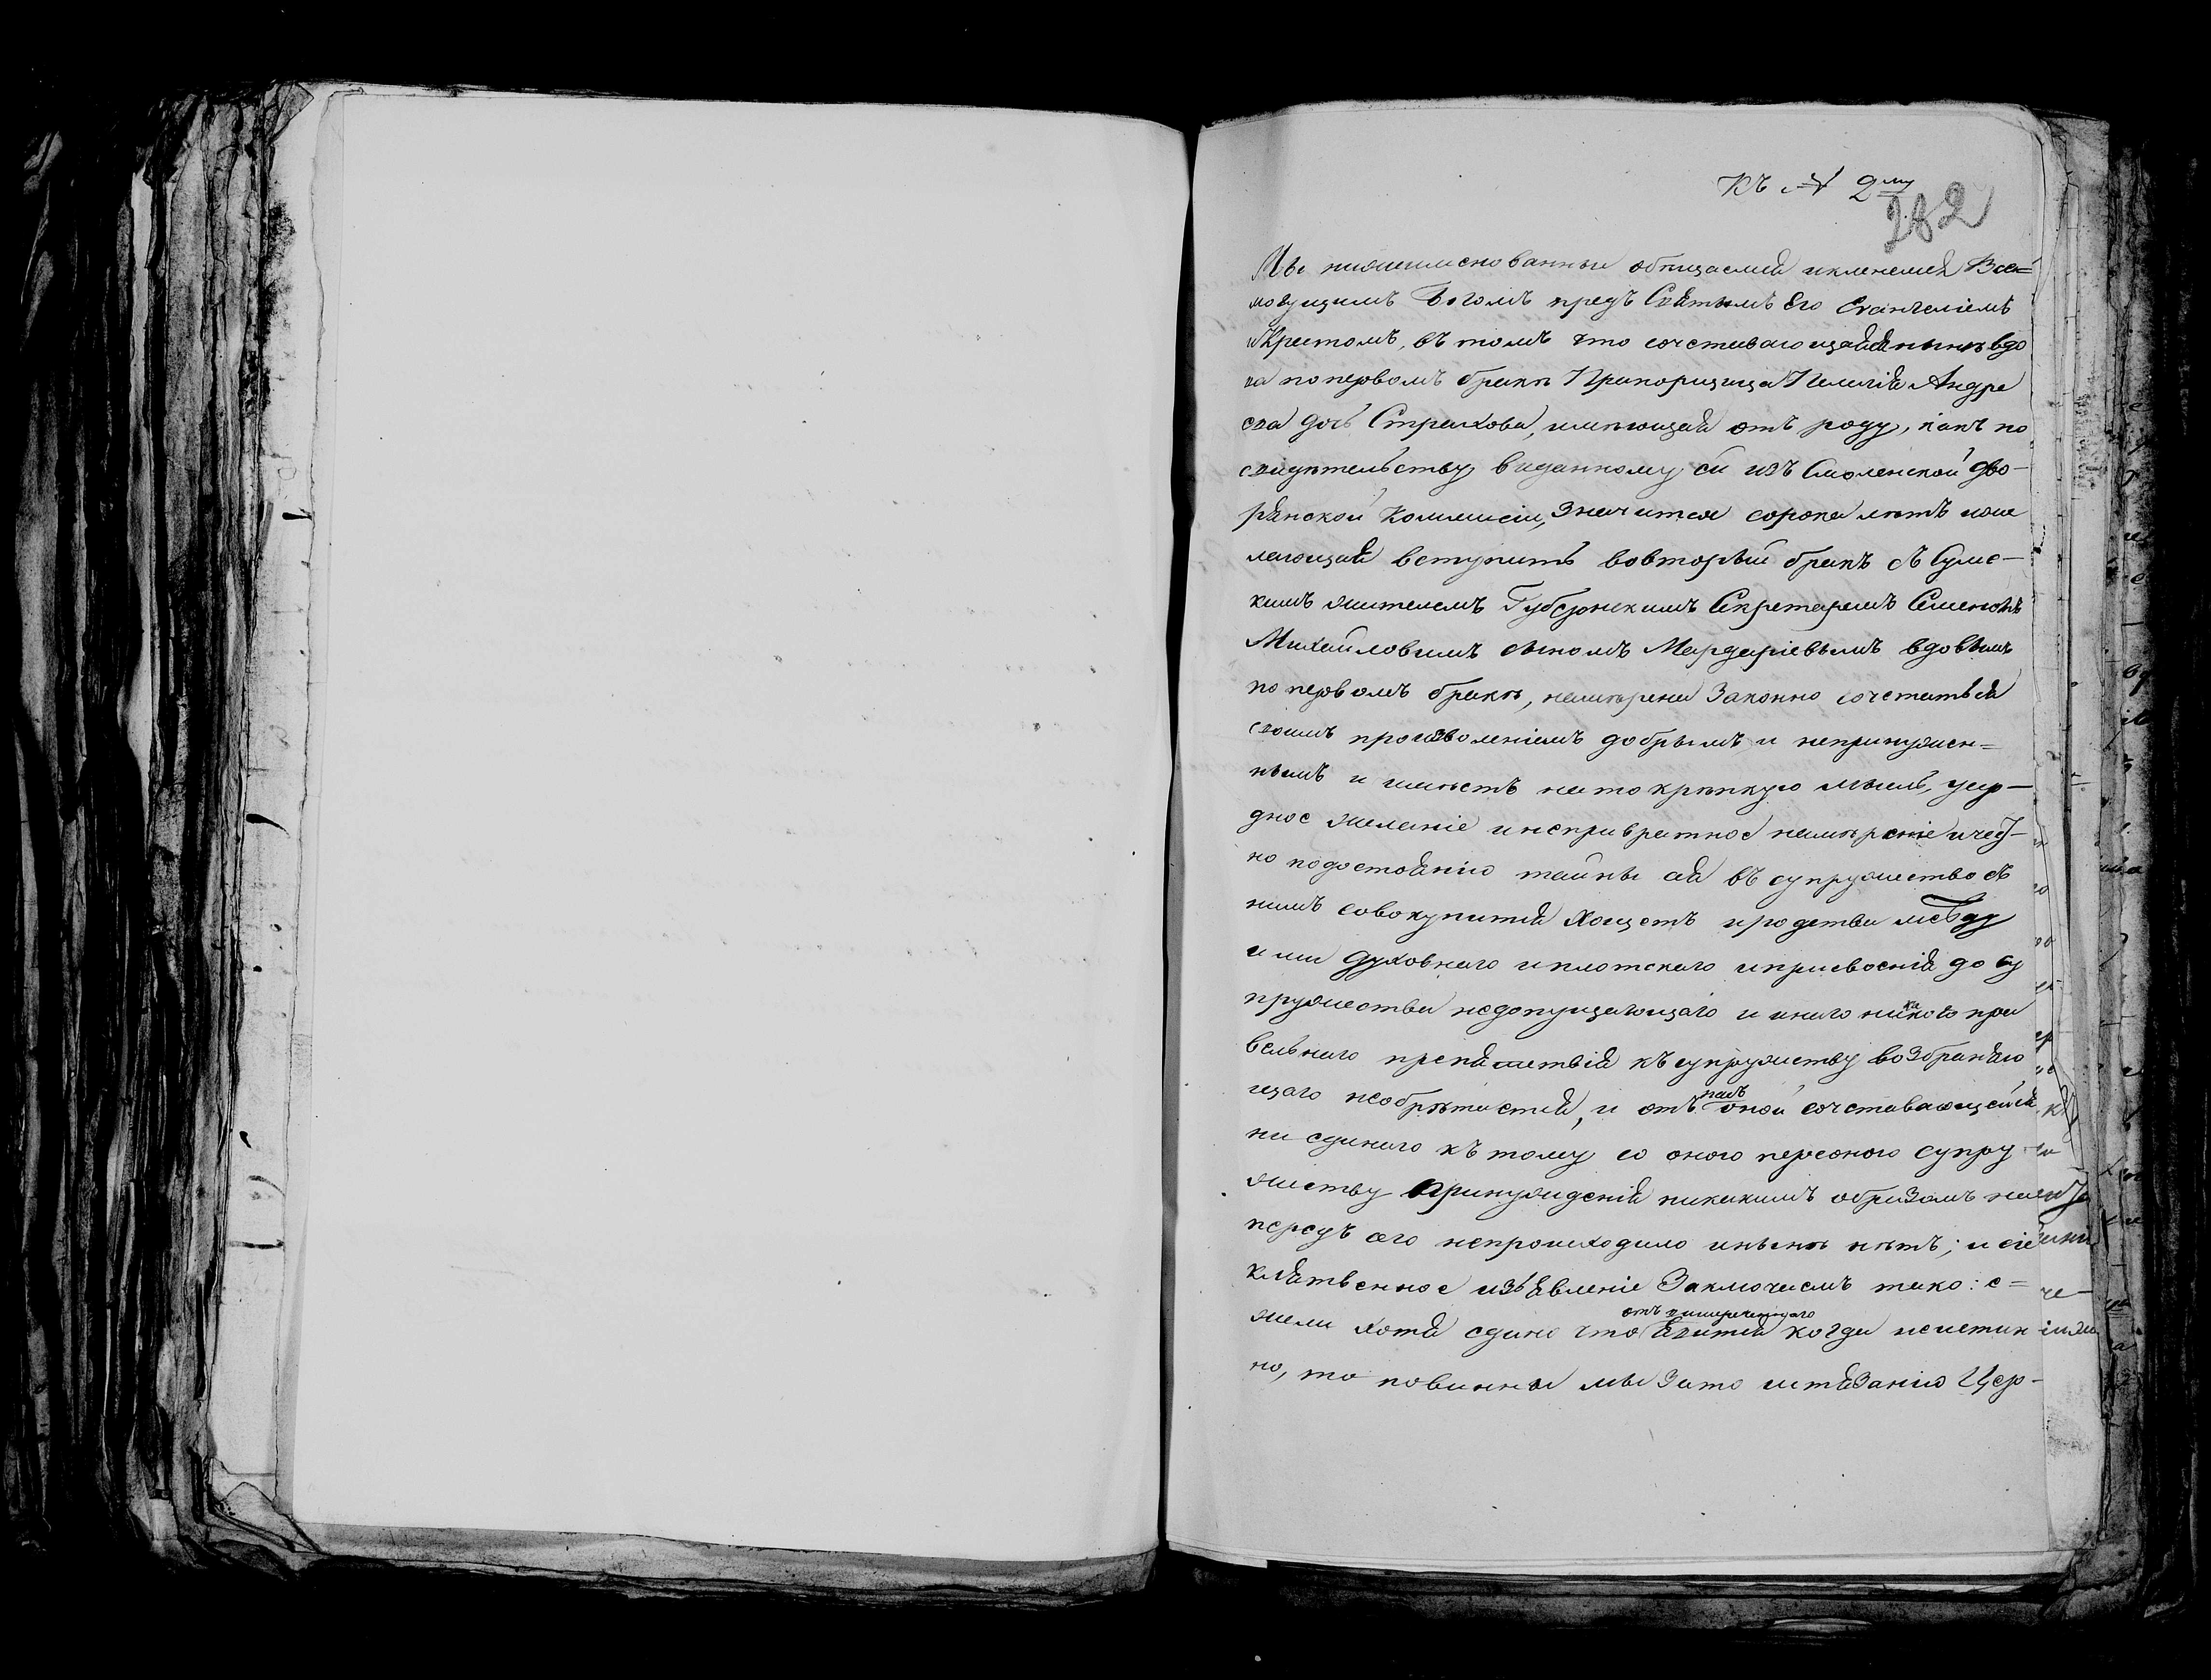 Къ № 2му
282
Мы нижеименованные обещаемся и кленемся Все=
могущимъ Богомъ предъ Святымъ Его Евангелiемъ
и Крестомъ, въ томъ что сочетавающаяся нынѣ вдо
ва по первомъ бракѣ Прапорщица Пелагiя Андре
ева дочь Страхова, имѣющая отъ роду, какъ по
свидѣтельству виданному ей изъ Смоленской дво-
рянской Коммисiи, значится сорока лѣтъ и же
лающая вступить во вторый бракъ съ Сумс-
кимъ жителемъ Губернскимъ Секретаремъ Семеномъ
Михайловимъ сыномъ Мардарiевымъ вдовымъ
по первомъ бракѣ, намѣрена Законно сочетаться
своимъ произволенiемъ добрымъ и непринужден=
нымъ и имѣетъ на то крѣпкую мысль, усер-
дное желанiе и непривратное намѣренiе и чест-
но по достоянiю тайны сея въ супружество съ
нимъ совокупитися хощетъ и родства между
ими духовнаго и плотскаго и присвоенiя до су
пружества недопущающаго и инаго никакого пра
вельнаго препятствiя къ супружеству возбраняю
щаго необрѣтается, и отъ насъ оной сочетавающейся
ни единаго къ тому со оного персоного супру
жеству принужденiя никакимъ образомъ на
передъ сего непроисходило и нынѣ нѣтъ; и сiе
клятвенное изъявленiе Заключаемъ тако: е=
жели хотя едино что отъ вишереченнаго явится когда неистин
но, то повинны мы за то истязанiю Цер-